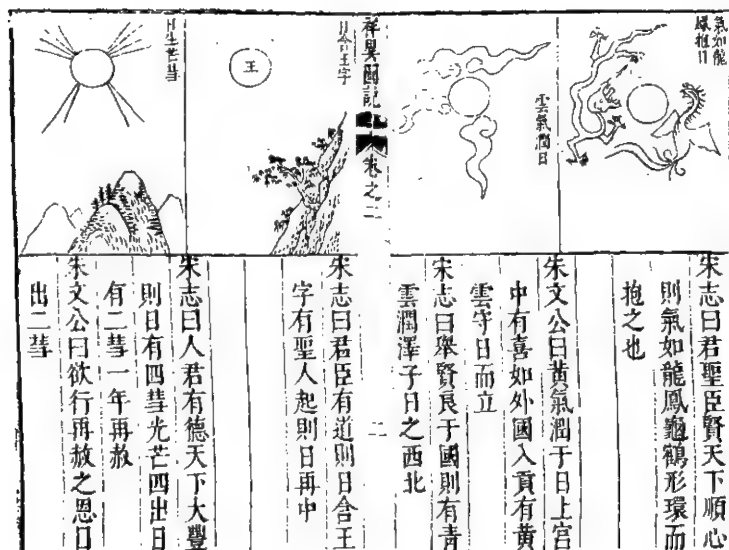 氣如龍
鳳抱日
宋志曰君聖臣賢天下順心
則氣如龍鳳龜鶴形環而
抱之也
雲氣潤日
朱文公曰黃氣潤于日上宮
中有喜如外國入貢有黃
雲守日而立
宋志曰舉賢良于國則有青
雲潤澤于日之西北
祥異圖說
卷之二
二
日含王字
王
宋志曰君臣有道則日含王
字有聖人起則日再中
日生芒彗
宋志曰人君有德天下大豐
則日有四彗光芒四出日
有二彗一年再赦
朱文公曰欲行再赦之恩日
出二彗